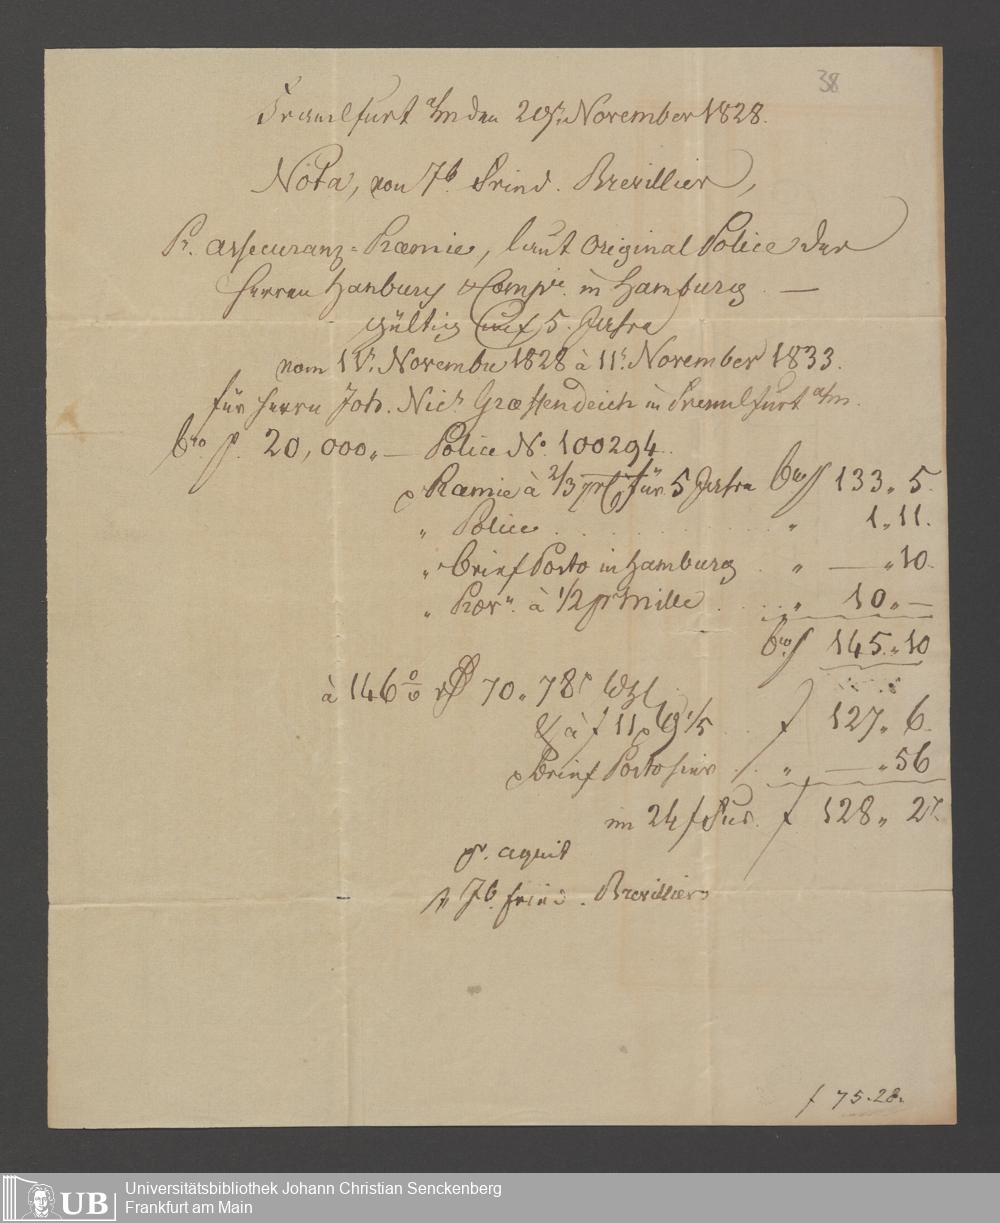 38
Frankfurt a/m den 29r. November 1828.
Nota, von Jb. Fried. Brevillier,
Pr. Assecuranz=Præmie, laut Original Police der
Herren Hanbury & Compie. in Hamburg. —
gültig auf 5. Jahre
vom 11r. November 1828 à 11r. November 1833.
für Herrn Joh. Nich. Græffendeich in Frankfurt a/m.
20,000„ — Police No. 100294.
Præmie à 2/3 prCt für 5 Jahre 133„ 5.
„ Police . . . . . . „ 1„11.
„ Brief Porto in Hamburg . „ — „10.
„ Prov. à 1/2 pr Mille . . . „ 10„ —
145„10
à 146 70„78
à f 11 1/5 . . f 127„ 6.
Brief Porto hier . . „ — „56
im 24 f Fus. f 128„ 2
p. aquit
Jb. Fried. Brevillier
f 75.28.
UB
Universitätsbibliothek Johann Christian Senckenberg
Frankfurt am Main